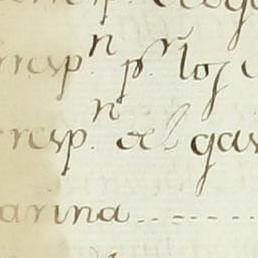 rresp.n p.r los
rresp.n del gas
arina